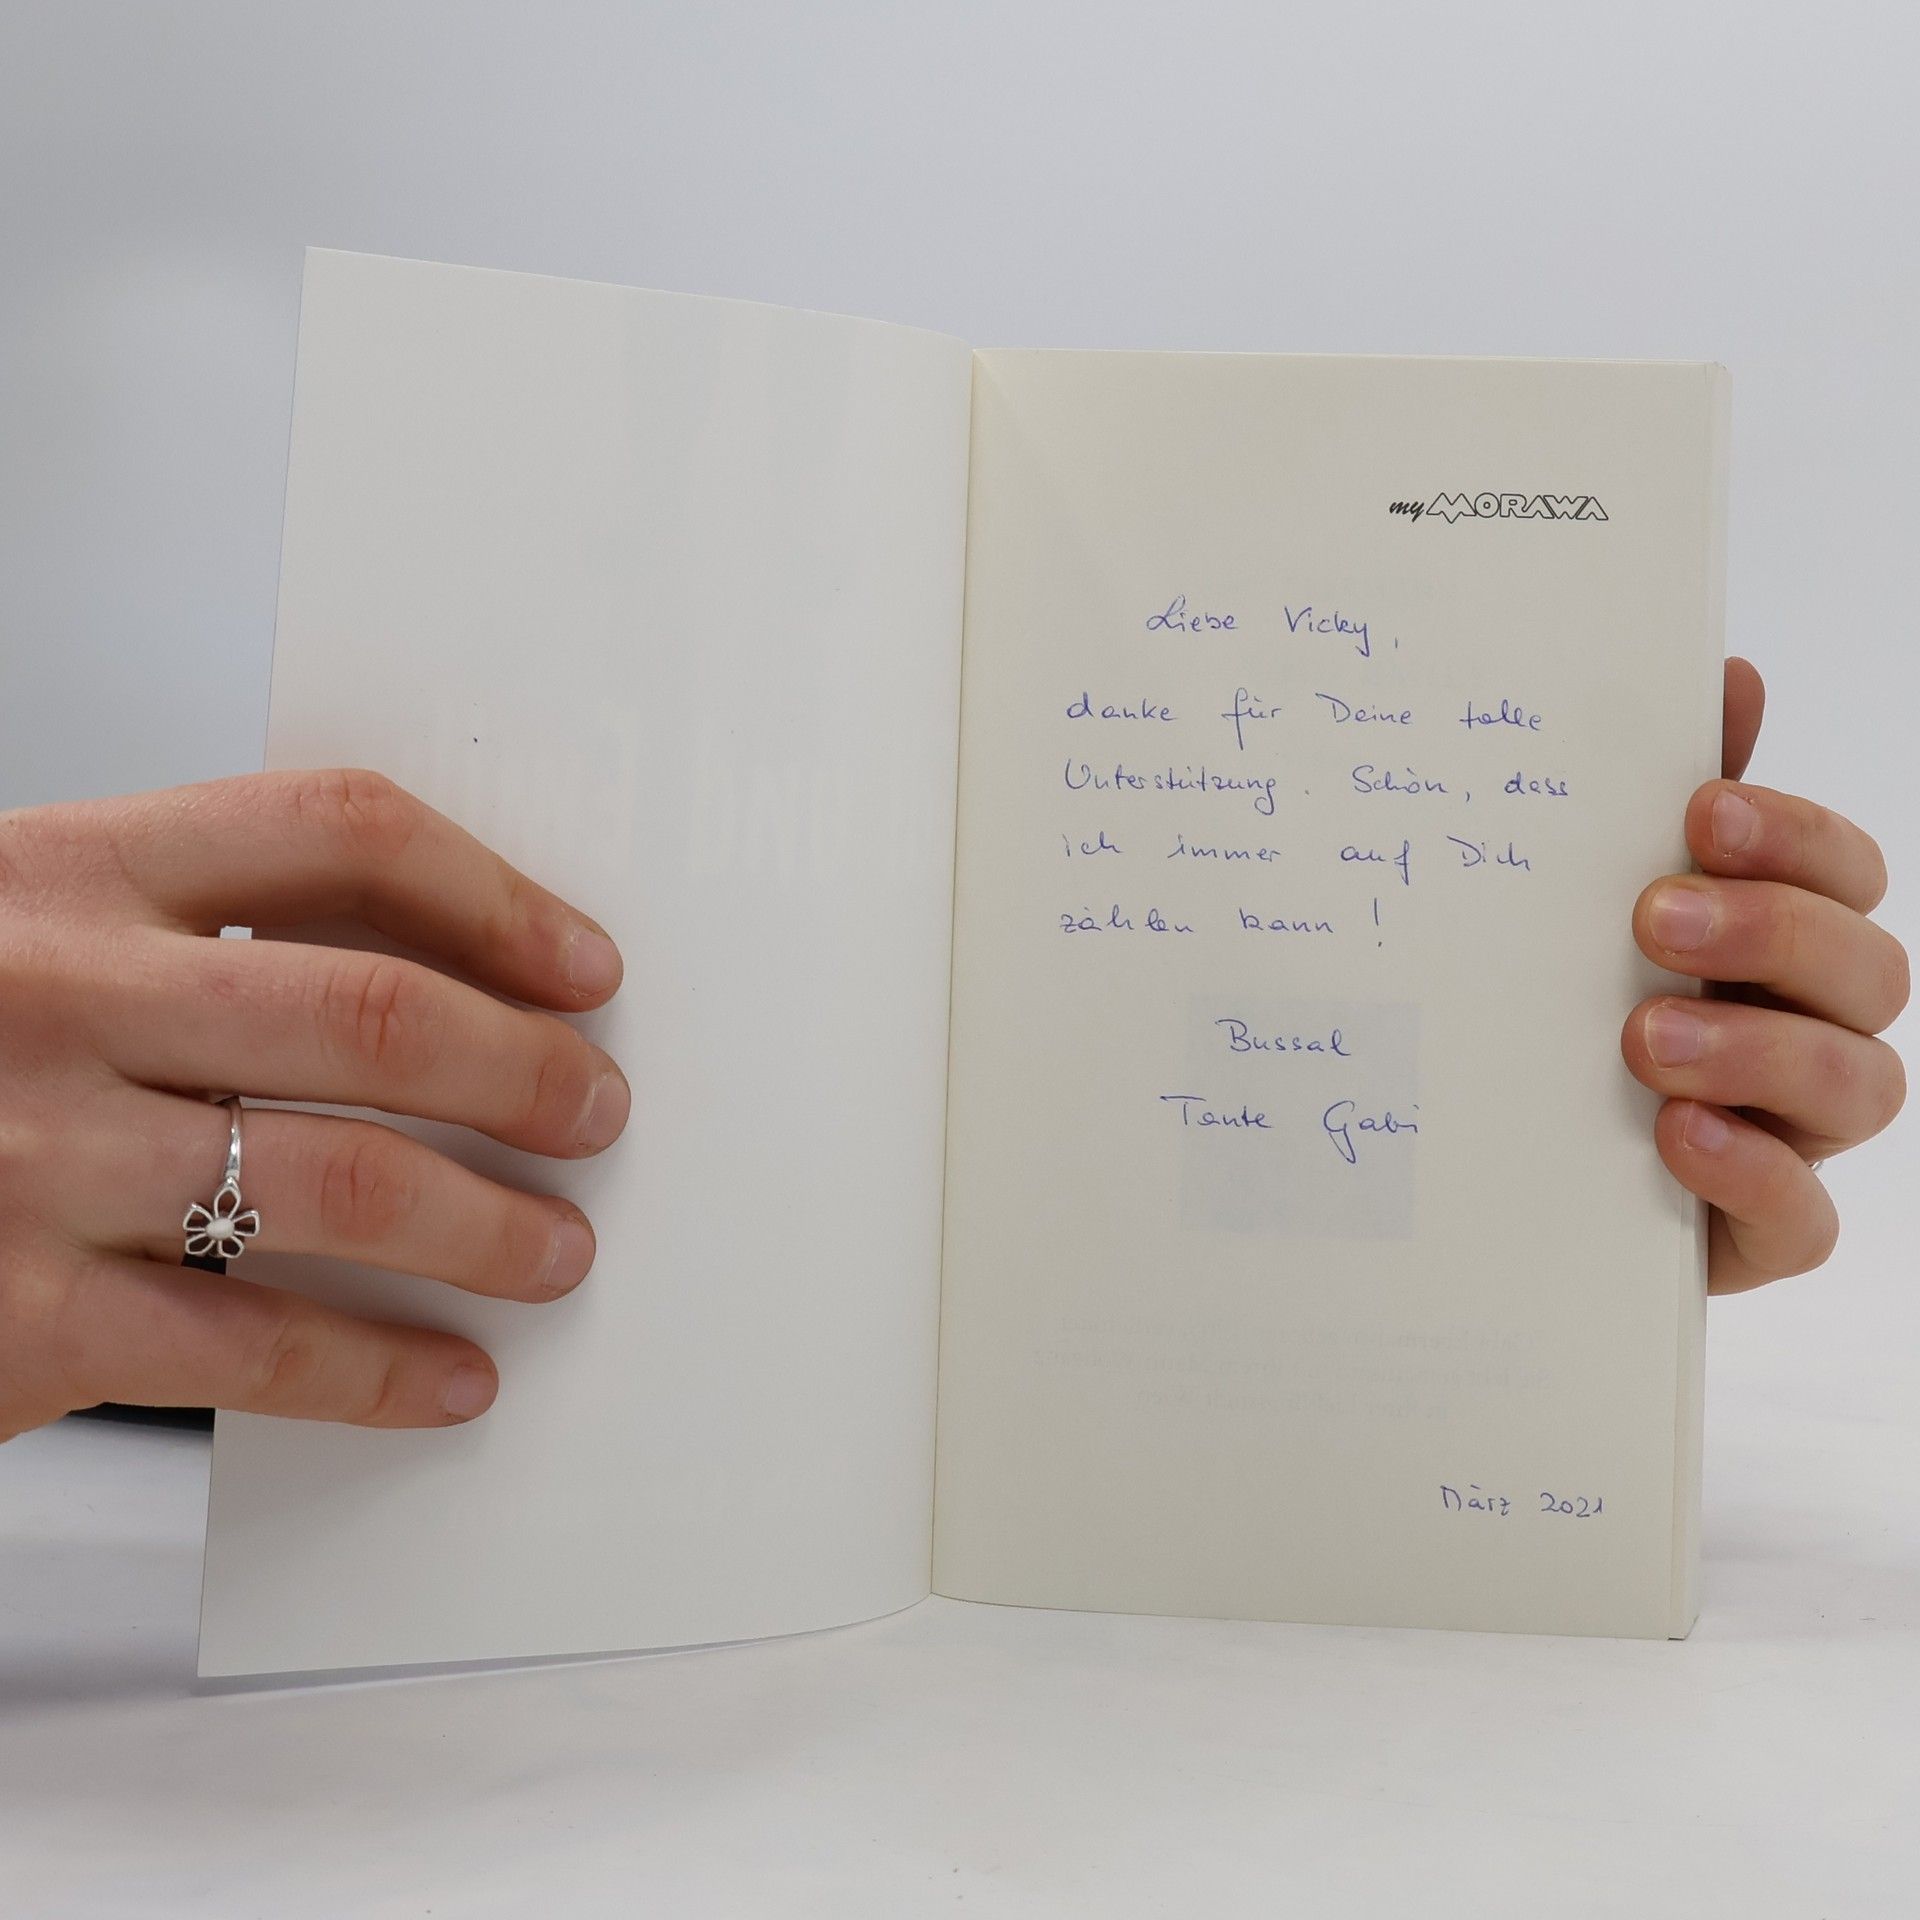 my MORAWA
Liebe Vicky,
danke für Deine tolle
Unterstützung. Schön, dass
ich immer auf Dich
zählen kann!
Bussal
Tante Gabi
März 2021